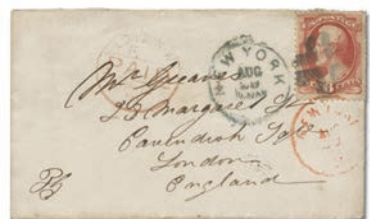 NEW YORK
AUG
PAID
Mr Greaves
23 Margaret St
Cavendish Sqre
London
England